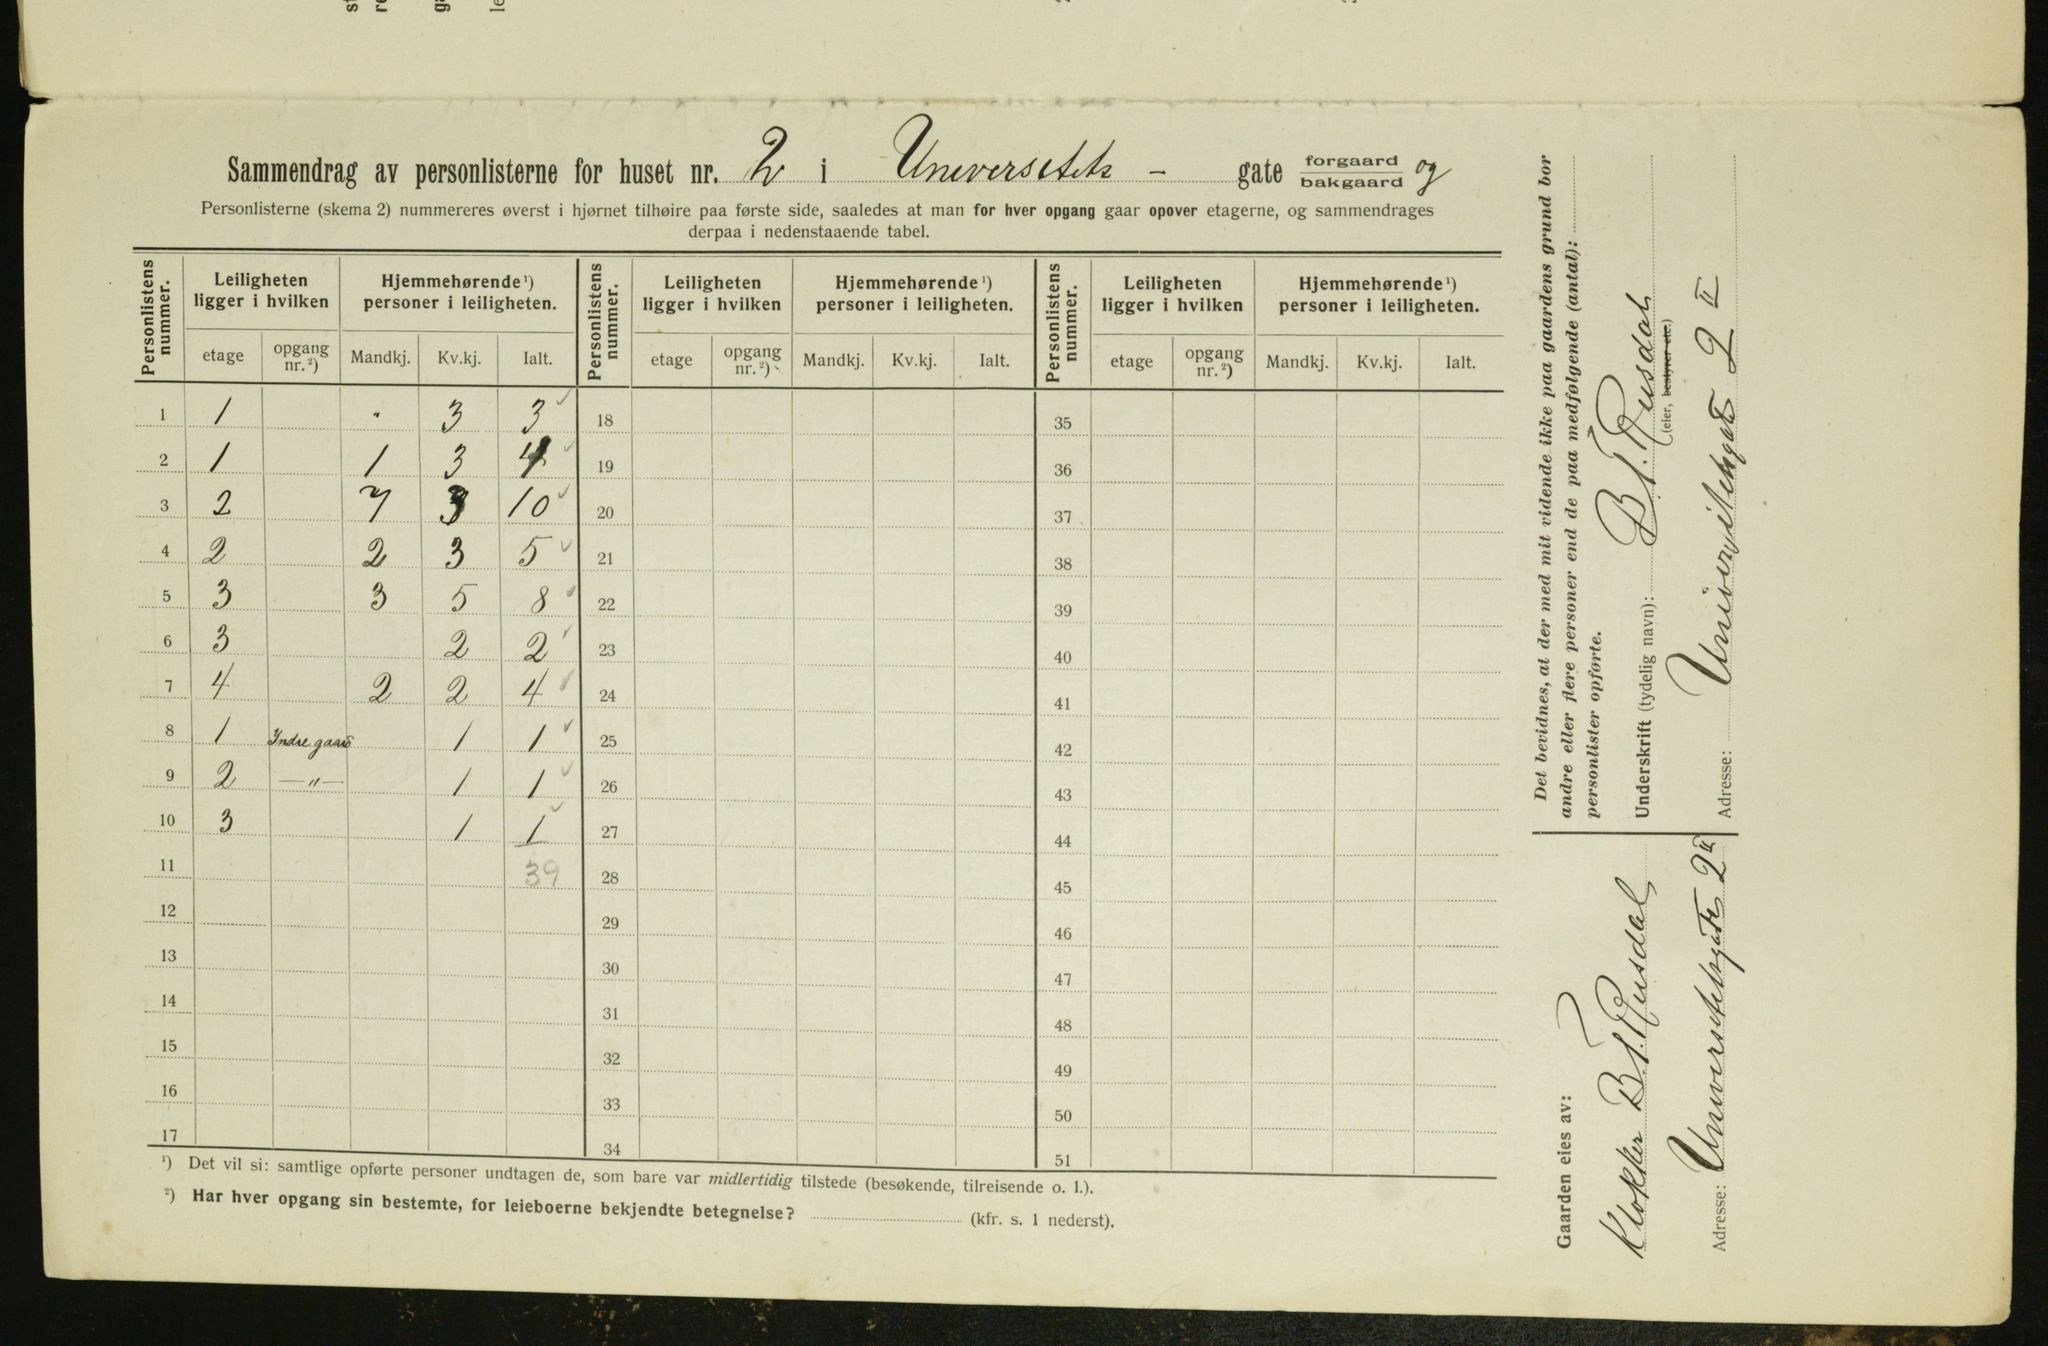 Sammendrag av personlisterne for huset nr. 2 i Universitets - gate forgaard bakgaard og
Personlisterne (skema 2) nummereres øverst i hjørnet tilhøire paa første side, saaledes at man for hver opgang gaar opover etagerne, og sammendrages
derpaa i nedenstaaende tabel.
Personlistens nummer. Leiligheten ligger i hvilken Hjemmehørende ¹) personer i leiligheten. Personlistens nummer. Leiligheten ligger i hvilken Hjemmehørende ¹) personer i leiligheten. Personlistens nummer. Leiligheten ligger i hvilken Hjemmehørende ¹) personer i leiligheten.
etage opgang nr. ²) Mandkj. Kv.kj. Ialt. etage opgang nr. ²) Mandkj. Kv.kj. Ialt. etage opgang nr. ²) Mandkj. Kv.kj. Ialt.
1 1 " 3 3 18 35
2 1 1 3 4 19 36
3 2 7 3 10 20 37
4 2 2 3 5 21 38
5 3 3 5 8 22 39
6 3 2 2 23 40
7 4 2 2 4 24 41
8 1 Indre gaard 1 1 25 42
9 2 —"— 1 1 26 43
10 3 1 1 27 44
11 39 28 45
12 29 46
13 30 47
14 31 48
15 32 49
16 33 50
17 34 51
¹) Det vil si: samtlige opførte personer undtagen de, som bare var midlertidig tilstede (besøkende, tilreisende o. l.).
²) Har hver opgang sin bestemte, for leieboerne bekjendte betegnelse? (kfr. s. 1 nederst).
Det bevidnes, at der med mit vidende ikke paa gaardens grund bor
andre eller flere personer end de paa medfølgende (antal):
personlister opførte.
Underskrift (tydelig navn): B. T. Rusdal
(eier, bestyrer etc.)
Adresse: Universitetsgate 2 II
Gaarden eies av:
Klokker B. T. Rusdal
Adresse: Universitetsgate 2 II